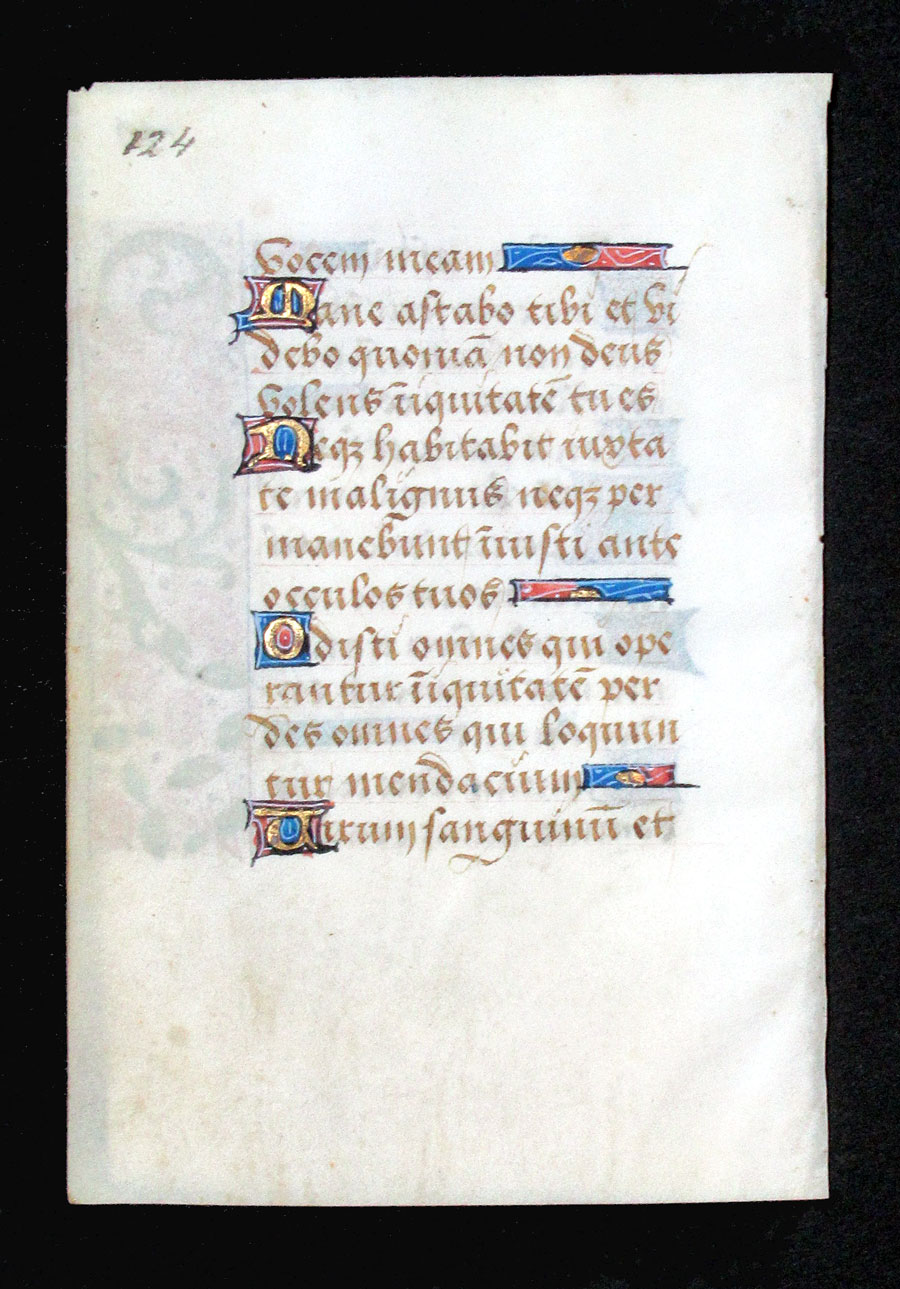 124
vocem meam
Mane astabo tibi et vi
debo quoniā non deus
volens īiquitatē tu es
Neqȝ habitabit iuxta
te malignus neqȝ per
manebunt īiusti ante
occulos tuos
Odisti omnes qui ope
rantur īiquitatē per
des omnes qui loquun
tur mendacium
Uirum sanguinū et